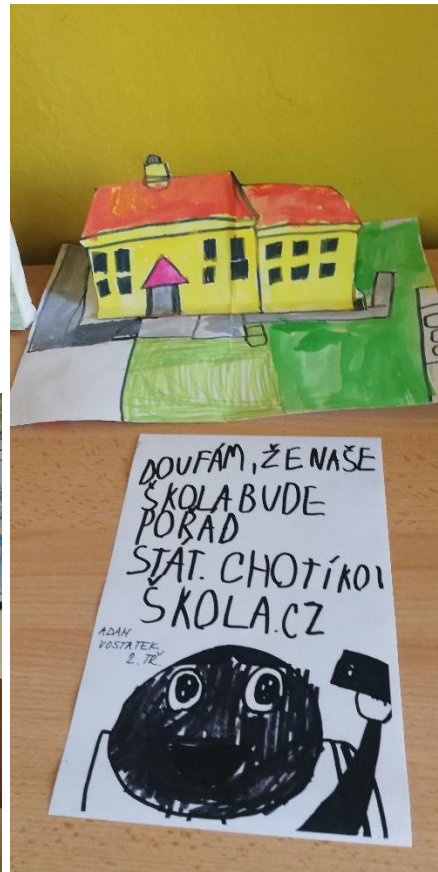 DOUFÁM, ŽE NAŠE
ŠKOLA BUDE
POŘÁD
STÁT. CHOTÍKOV
ŠKOLA.CZ
ADAM
VOSTATEK
2. TŘ.